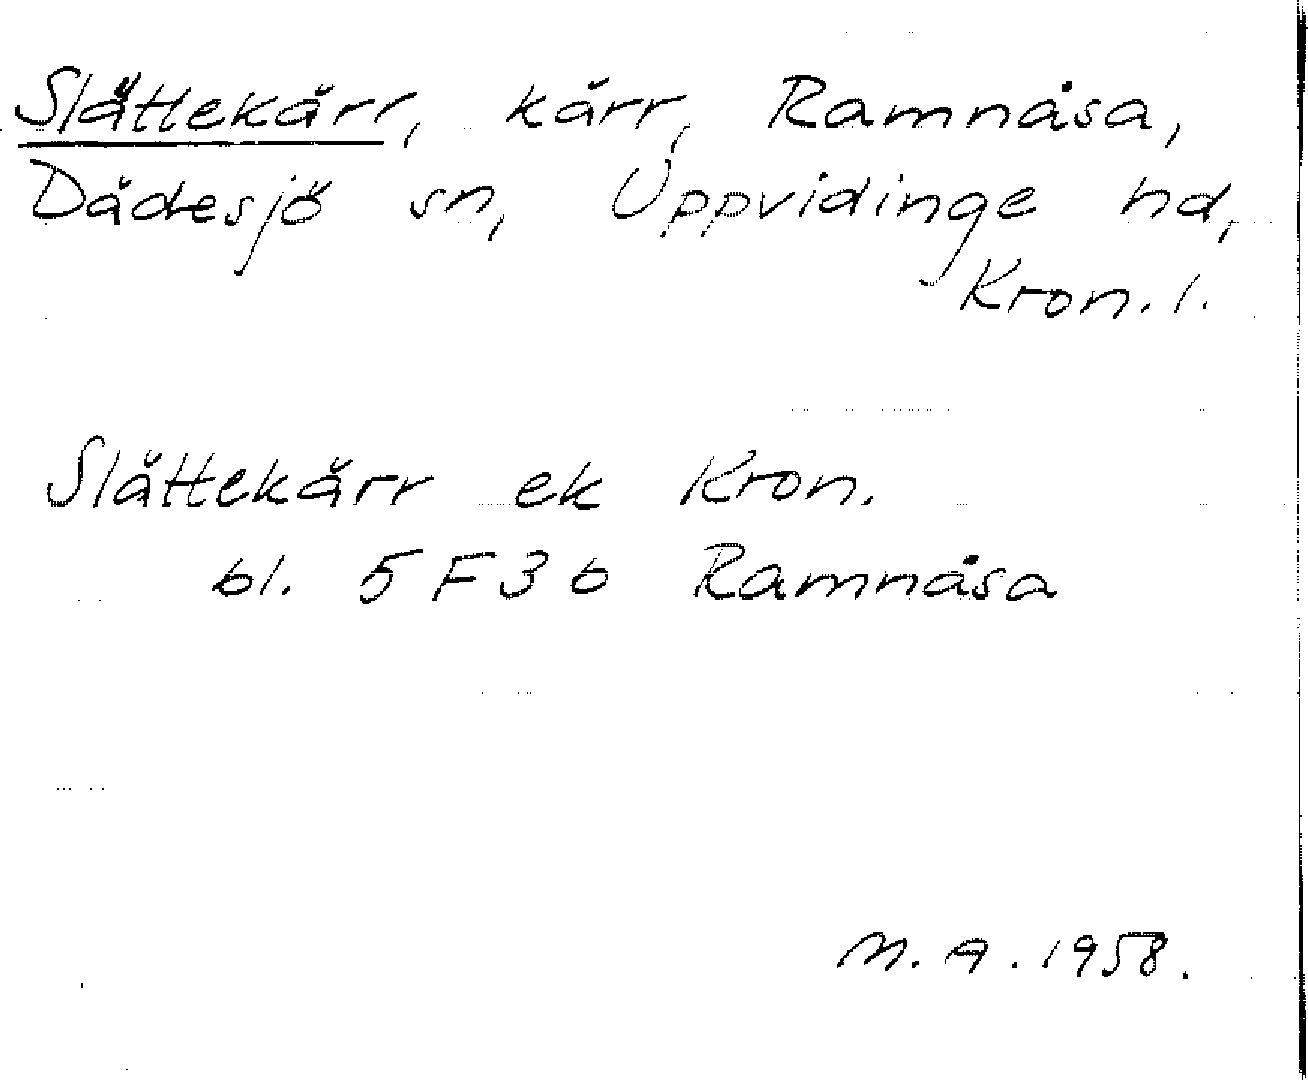 Slättekärr, kärr, Ramnåsa,
Dädesjö sn, Uppvidinge hd,
Kron. l.
Slättekärr ek Kron.
bl. 5 F 3 b Ramnåsa
M. A. 1958.